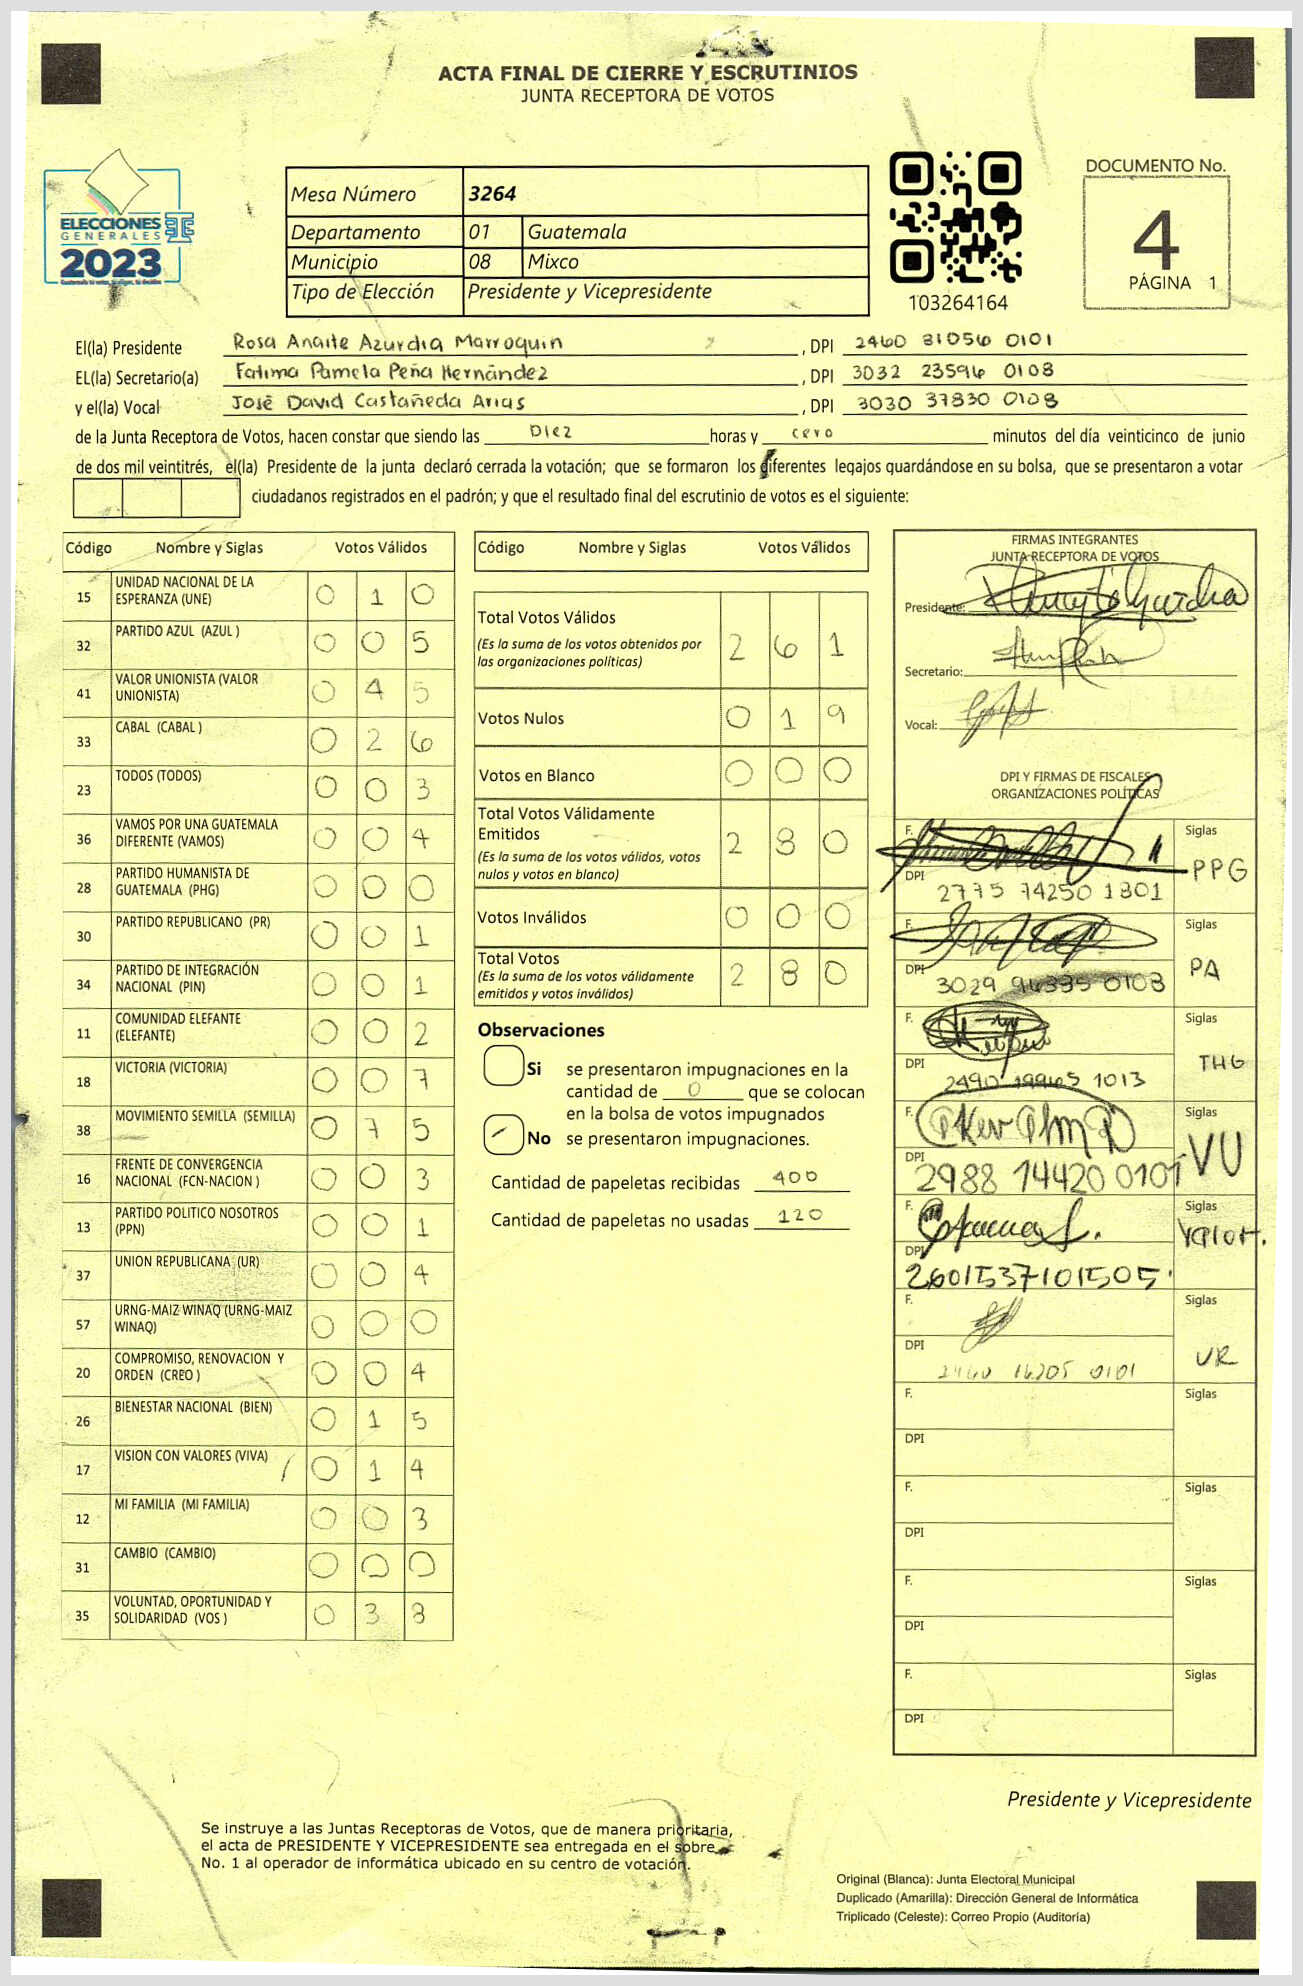 ACTA FINAL DE CIERRE Y ESCRUTINIOS
JUNTA RECEPTORA DE VOTOS
ELECCIONES
GENERALES
2023
Mesa Número 3264
Departamento 01 Guatemala
Municipio 08 Mixco
Tipo de Elección Presidente y Vicepresidente
103264164
DOCUMENTO No.
4
PÁGINA 1
El(la) Presidente Rosa Anaite Azurdia Marroquin , DPI 2460 81056 0101
EL(la) Secretario(a) Fatima Pamela Peña Hernández , DPI 3032 23596 0108
y el(la) Vocal José David Castañeda Arias , DPI 3030 37830 0108
de la Junta Receptora de Votos, hacen constar que siendo las Diez horas y cero minutos del día veinticinco de junio
de dos mil veintitrés, el(la) Presidente de la junta declaró cerrada la votación; que se formaron los diferentes legajos guardándose en su bolsa, que se presentaron a votar
ciudadanos registrados en el padrón; y que el resultado final del escrutinio de votos es el siguiente:
Código Nombre y Siglas Votos Válidos
15 UNIDAD NACIONAL DE LA ESPERANZA (UNE) 0 1 0
32 PARTIDO AZUL (AZUL ) 0 0 5
41 VALOR UNIONISTA (VALOR UNIONISTA) 0 4 5
33 CABAL (CABAL ) 0 2 6
23 TODOS (TODOS) 0 0 3
36 VAMOS POR UNA GUATEMALA DIFERENTE (VAMOS) 0 0 4
28 PARTIDO HUMANISTA DE GUATEMALA (PHG) 0 0 0
30 PARTIDO REPUBLICANO (PR) 0 0 1
34 PARTIDO DE INTEGRACIÓN NACIONAL (PIN) 0 0 1
11 COMUNIDAD ELEFANTE (ELEFANTE) 0 0 2
18 VICTORIA (VICTORIA) 0 0 7
38 MOVIMIENTO SEMILLA (SEMILLA) 0 7 5
16 FRENTE DE CONVERGENCIA NACIONAL (FCN-NACION ) 0 0 3
13 PARTIDO POLITICO NOSOTROS (PPN) 0 0 1
37 UNION REPUBLICANA (UR) 0 0 4
57 URNG-MAIZ WINAQ (URNG-MAIZ WINAQ) 0 0 0
20 COMPROMISO, RENOVACION Y ORDEN (CREO ) 0 0 4
26 BIENESTAR NACIONAL (BIEN) 0 1 5
17 VISION CON VALORES (VIVA) 0 1 4
12 MI FAMILIA (MI FAMILIA) 0 0 3
31 CAMBIO (CAMBIO) 0 0 0
35 VOLUNTAD, OPORTUNIDAD Y SOLIDARIDAD (VOS ) 0 3 8
Código Nombre y Siglas Votos Válidos
Total Votos Válidos 2 6 1
(Es la suma de los votos obtenidos por
las organizaciones políticas)
Votos Nulos 0 1 9
Votos en Blanco 0 0 0
Total Votos Válidamente
Emitidos 2 8 0
(Es la suma de los votos válidos, votos
nulos y votos en blanco)
Votos Inválidos 0 0 0
Total Votos 2 8 0
(Es la suma de los votos válidamente
emitidos y votos inválidos)
Observaciones
Si se presentaron impugnaciones en la
cantidad de 0 que se colocan
en la bolsa de votos impugnados
No se presentaron impugnaciones.
Cantidad de papeletas recibidas 400
Cantidad de papeletas no usadas 120
FIRMAS INTEGRANTES
JUNTA RECEPTORA DE VOTOS
Presidente:
Secretario:
Vocal:
DPI Y FIRMAS DE FISCALES
ORGANIZACIONES POLÍTICAS
F. Siglas
DPI 2775 74250 1801 PPG
F. Siglas
DPI 3029 0108 PA
F. Siglas
DPI 2490 19965 1013 THG
F. Siglas
DPI 2988 14420 0101 VU
F. Siglas
DPI 2601537101505 Valor.
F. Siglas
DPI 2460 16205 0101 UR
F. Siglas
DPI
F. Siglas
DPI
F. Siglas
DPI
F. Siglas
DPI
Presidente y Vicepresidente
Se instruye a las Juntas Receptoras de Votos, que de manera prioritaria,
el acta de PRESIDENTE Y VICEPRESIDENTE sea entregada en el sobre
No. 1 al operador de informática ubicado en su centro de votación.
Original (Blanca): Junta Electoral Municipal
Duplicado (Amarilla): Dirección General de Informática
Triplicado (Celeste): Correo Propio (Auditoría)